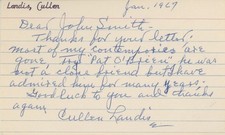 Landis, Cullen
Jan. 1967
Dear John Smith:
Thanks for your letter;
most of my contempories are
gone, but "Pat O'Brien", he was
not a close friend but have
admired him for many years.
Good luck to you and thanks
again,
Cullen Landis